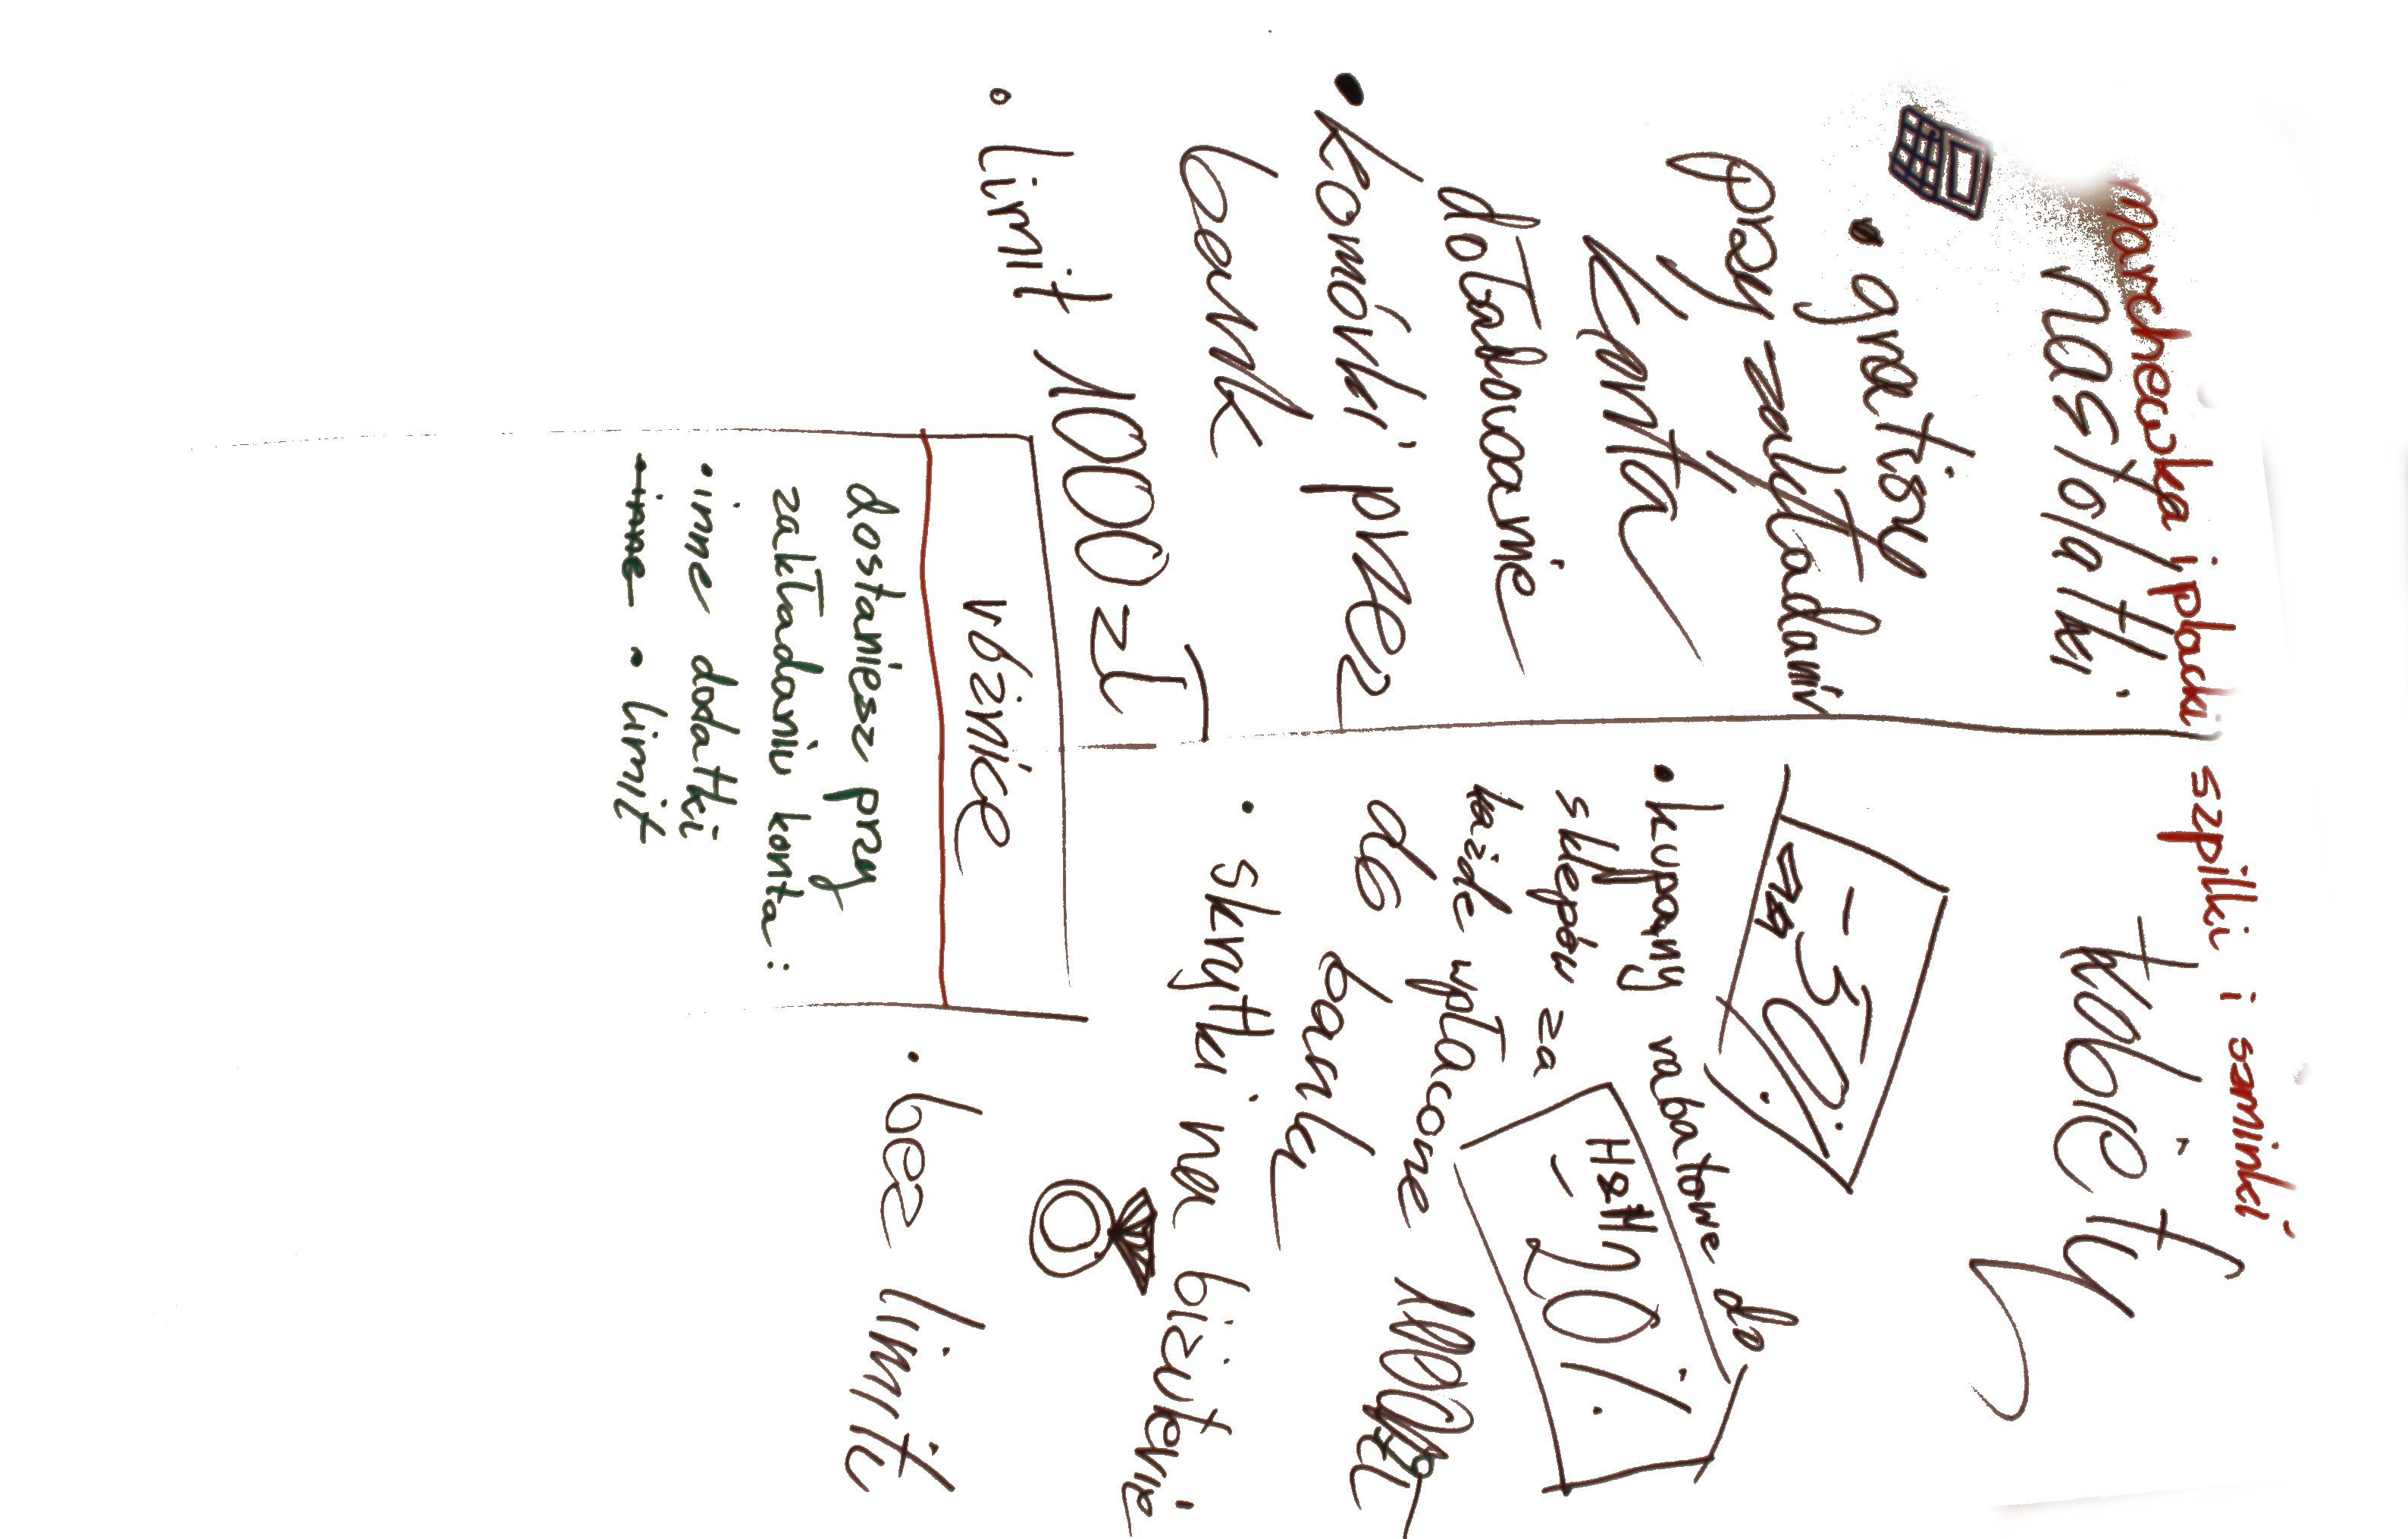 marchewka i placki
nastolatki
• gratisy
przy zakładaniu
konta
doładowanie
• komórki przez
bank
• limit 1000 zł
szpilki i szminki
kobiety
-50%
• kupony rabatowe do
sklepów za
każde wpłacone
do banku
H&M
-20%
• skrytki na biżuterię
• bez limitu
różnice
dostaniesz przy
zakładaniu konta:
• inne dodatki
• inne • limit